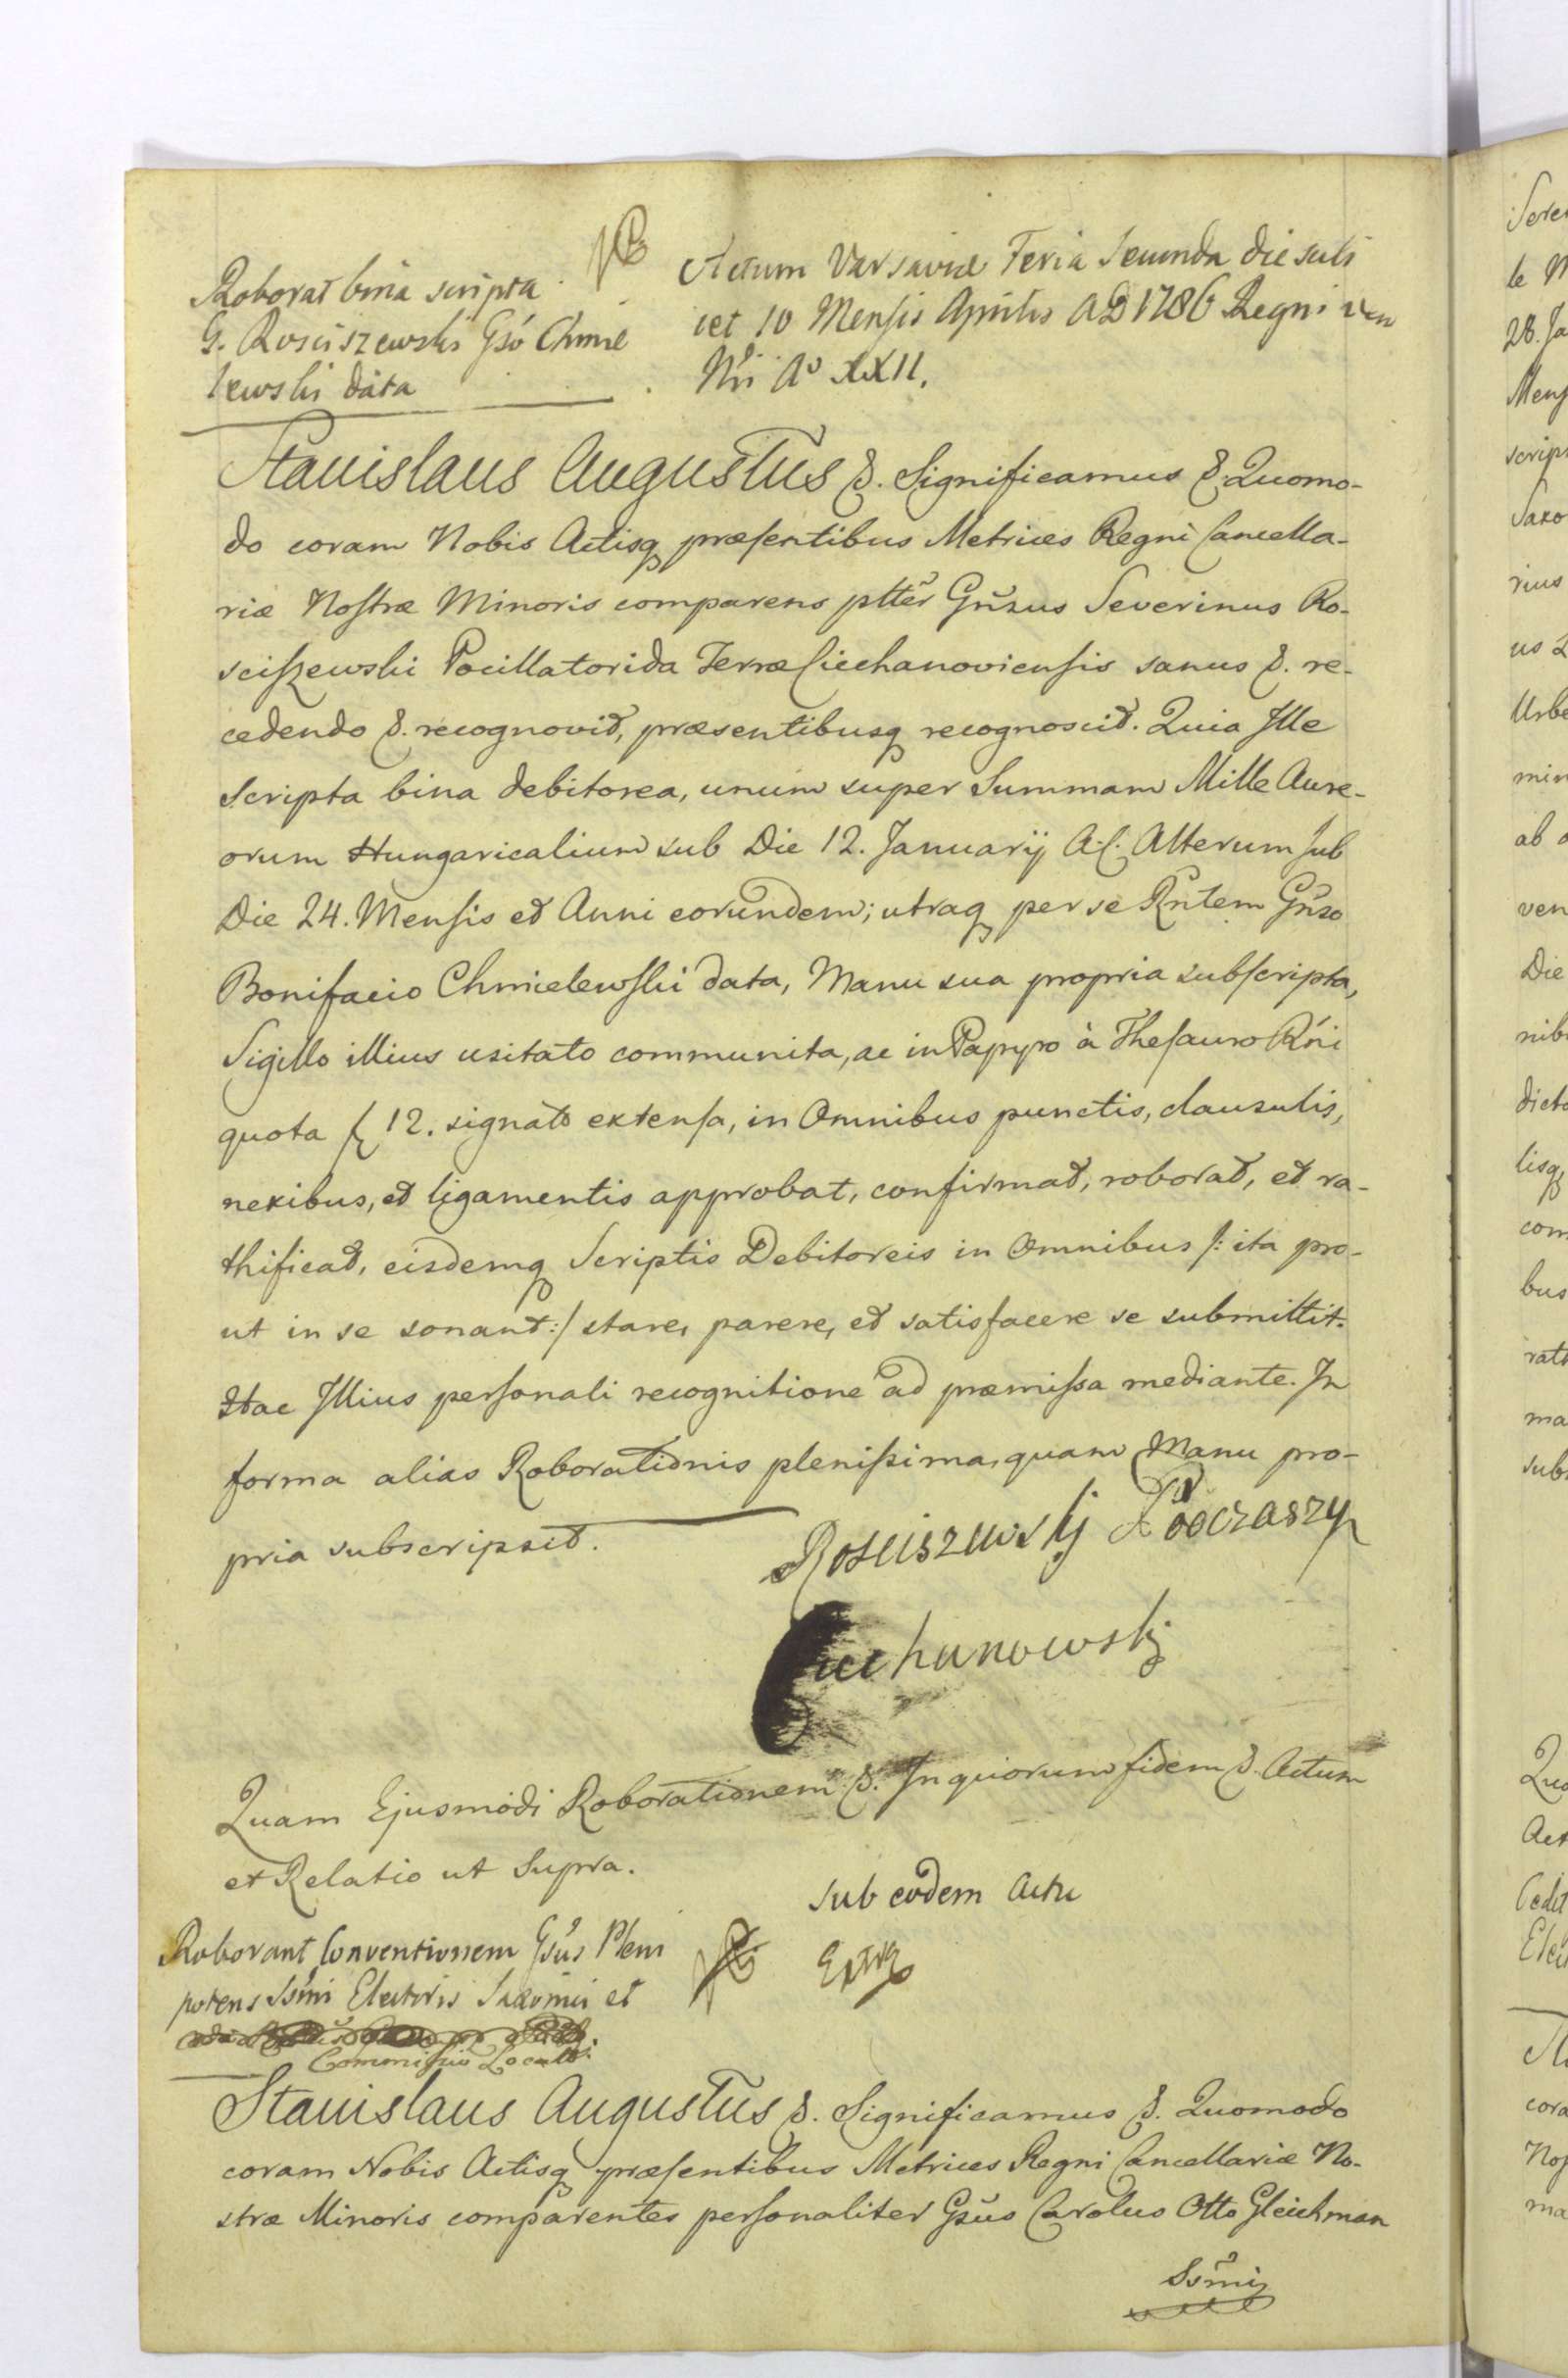 Roborat bina scripta
G. Rosciszewski Gso Chmie
lewski data
Actum Varsaviæ Feria Secunda die scili
cet 10 Mensis Aprilis AD 1786 Regni vero
Nri Aº XXII.
Stanislaus Augustus &. Significamus &. Quomo-
do coram Nobis Actisq præsentibus Metrices Regni Cancella-
riæ Nostræ Minoris comparens pltter Gnsus Severinus Ro-
sciszewski Pocillatorida Terræ Ciechanoviensis sanus &. re-
cedendo &. recognovit, præsentibusq recognoscit. Quia Ille
Scripta bina debitorea, unum super Summam Mille Aure-
orum Hungaricalium sub Die 12. Januarij A. C. Alterum sub
Die 24. Mensis et Anni eorundem; utraq per se Rntem Gnso
Bonifacio Chmielewski data, Manu sua propria subscripta,
Sigillo illius usitato communita, ac in Papyro à Thesauro Rni
quota f 12. signato extensa, in Omnibus punctis, clausulis,
nexibus, et ligamentis approbat, confirmat, roborat, et ra-
thificat, eisdemq Scriptis Debitoreis in Omnibus /: ita pro-
ut in se sonant :/ stare, parere, et satisfacere se submittit.
Hac Illius personali recognitione ad præmissa mediante. In
forma alias Roborationis plenissima, quam Manu pro-
pria subscripsit.
Rosciszewskij Podczaszy
Ciechanowskj
Quam Ejusmodi Roborationem &. In quorum fidem &. Actum
et Relatio ut Supra.
Sub eodem Actu
Roborant Conventionem Gsus Pleni
potens Ssmi Electoris Saxoniæ et
Commissio Localis.
Extrq
Stanislaus Augustus &. Significamus &. Quomodo
coram Nobis Actisq præsentibus Metrices Regni Cancellariæ No-
stræ Minoris comparentes personaliter Gsus Carolus Otto Gleichman
Ssmi